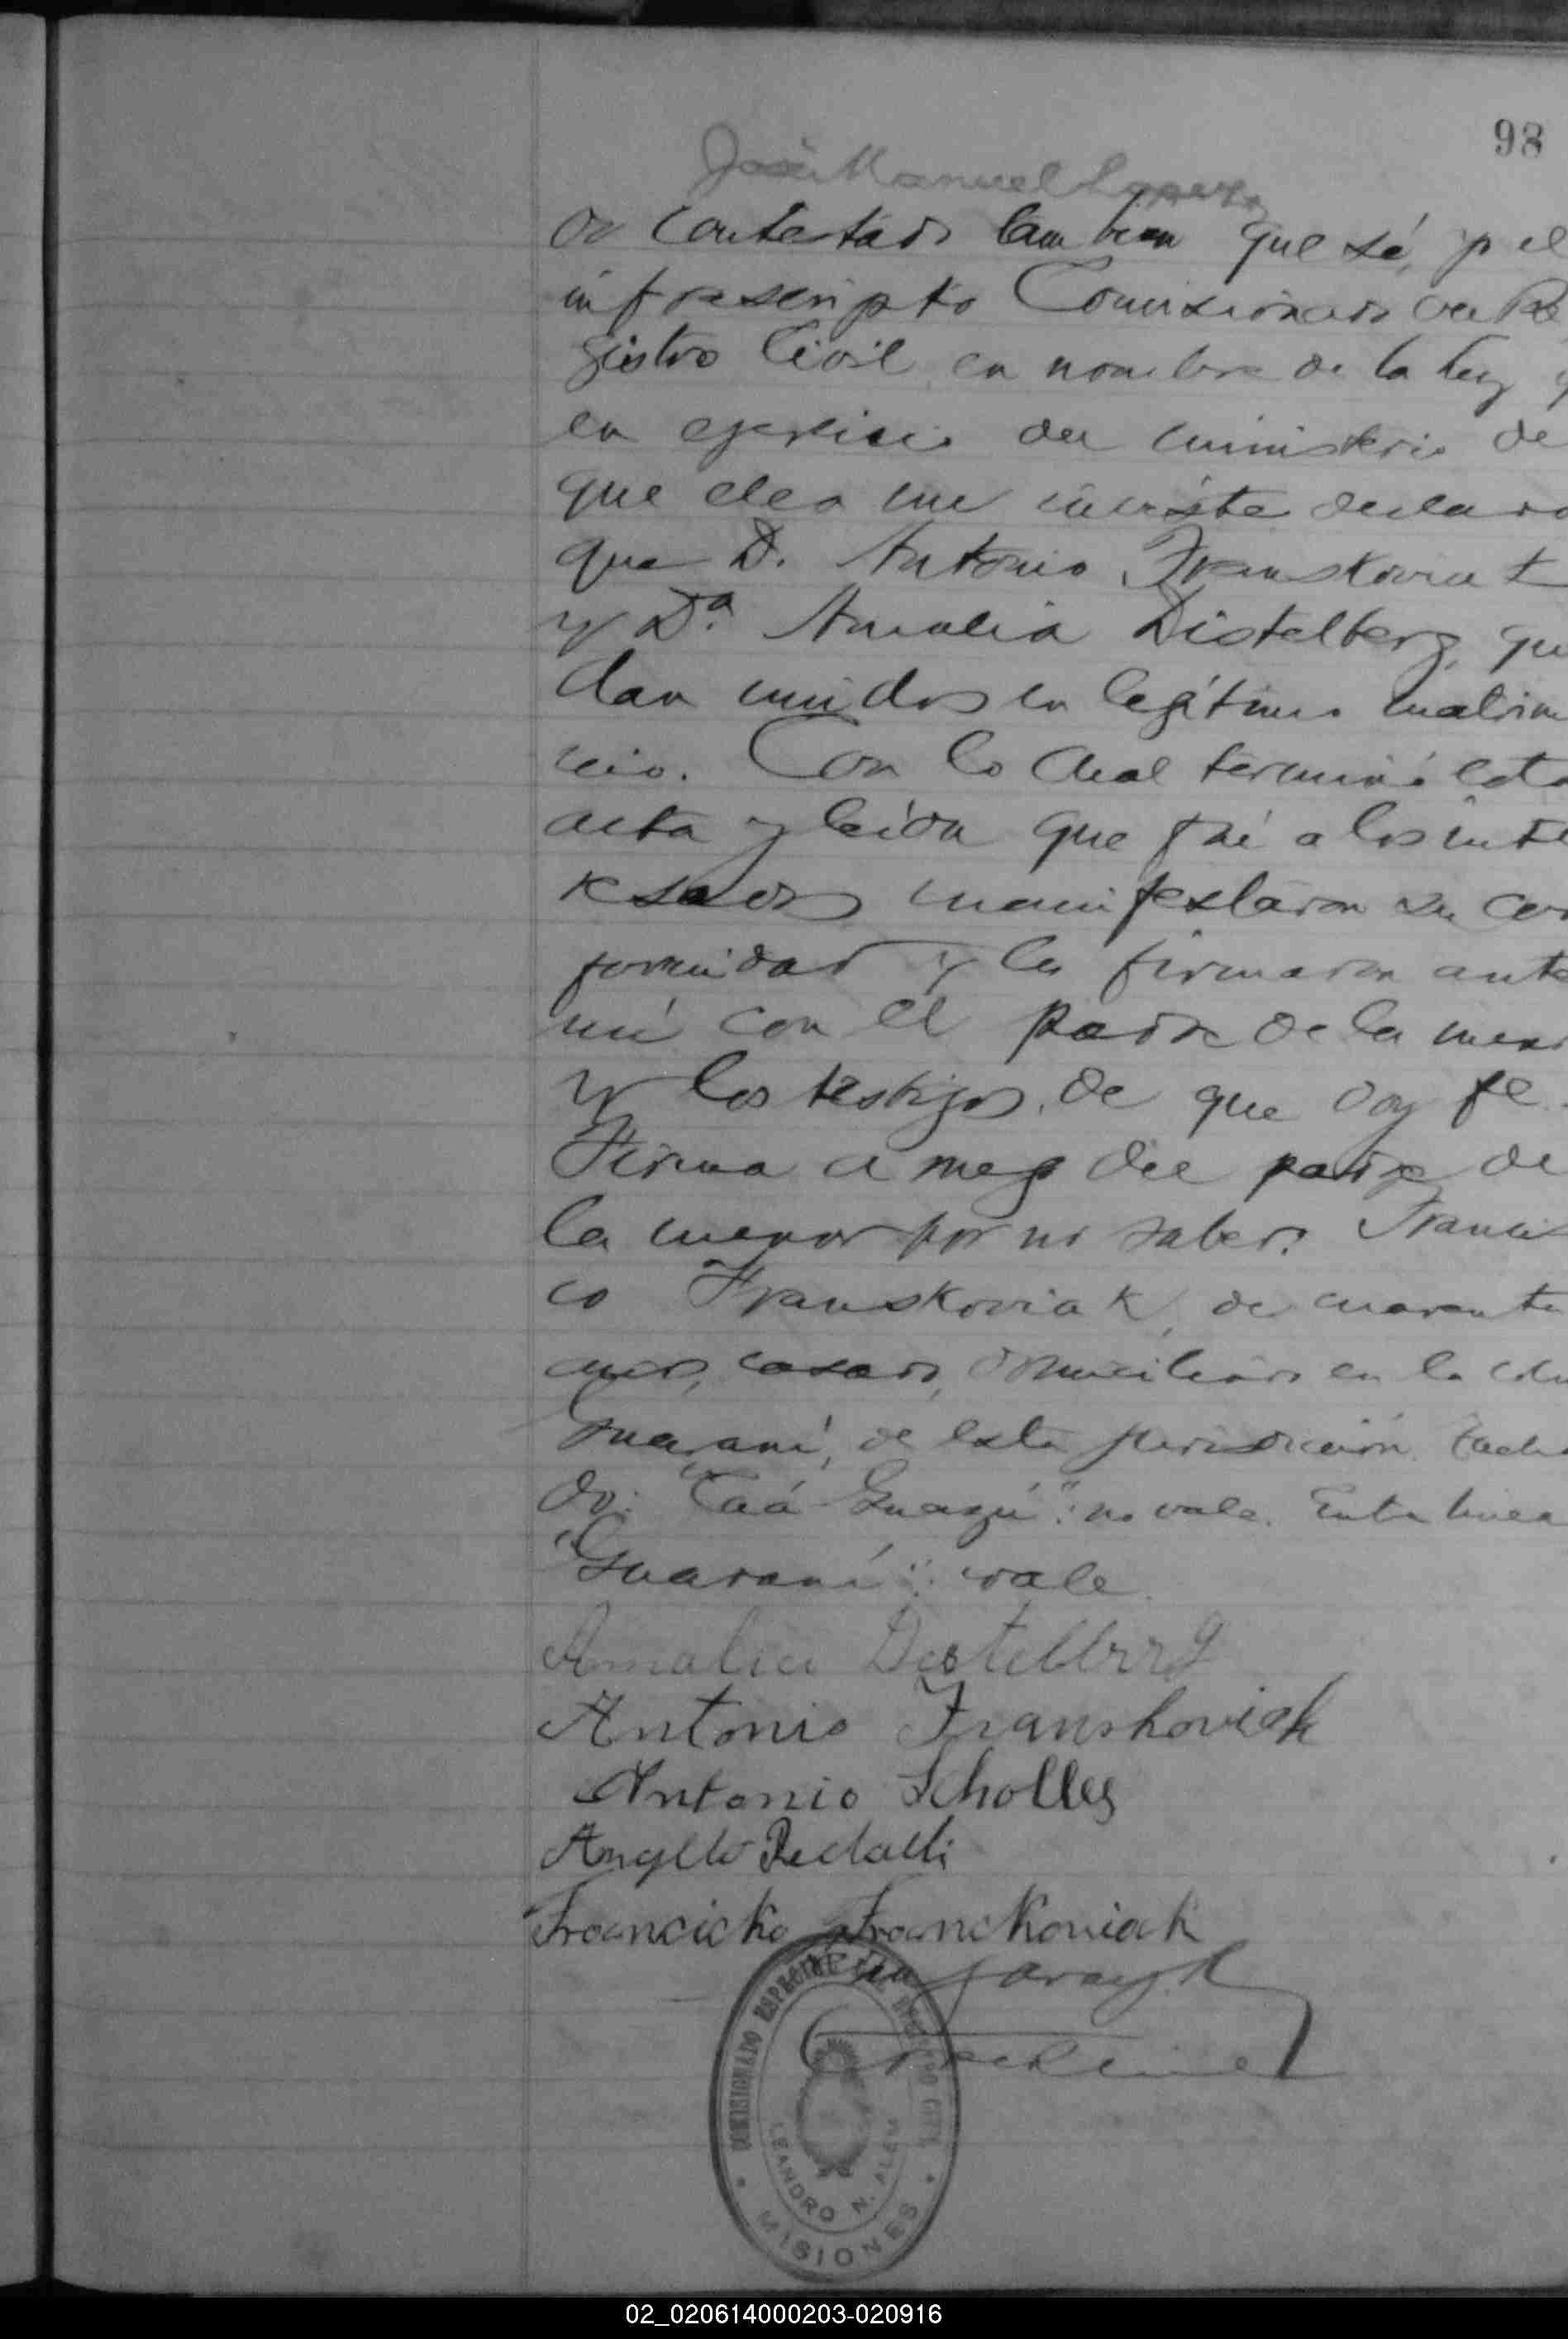 98
José Manuel Lopez
do contestado tambien que sé, y el
infrascripto Comisionado del Re
gistro Civil en nombre de la ley y
en ejercicio del ministerio de
que ella me inviste declaro
que D. Antonio Franskoviak
y Dª. Amalia Distelberg, que
dan unidos en legítimo matrimo
nio. Con lo cual terminó esta
acta y leída que fué a los inte
resados manifestaron su con
formidad y la firmaron ante
mí con el padre de la menor
y los testigos, de que doy fe.
Firma a ruego del padre de
la menor por no saber: Francis
co Franskoviak, de cuarenta
años, casado, domiciliado en la colo
Guaraní, de esta jurisdicción. Tacha
do: "Caá-Guazú": no vale. Entre linea
"Guaraní": vale.
Amalia Distelberg
Antonio Franskoviak
Antonio Scholles
Angelo
Francicko Franckoviak
COMISIONATO ESPECIAL DEL REGISTRO CIVIL
LEANDRO N. ALEM
* MISIONES *
02_020614000203-020916